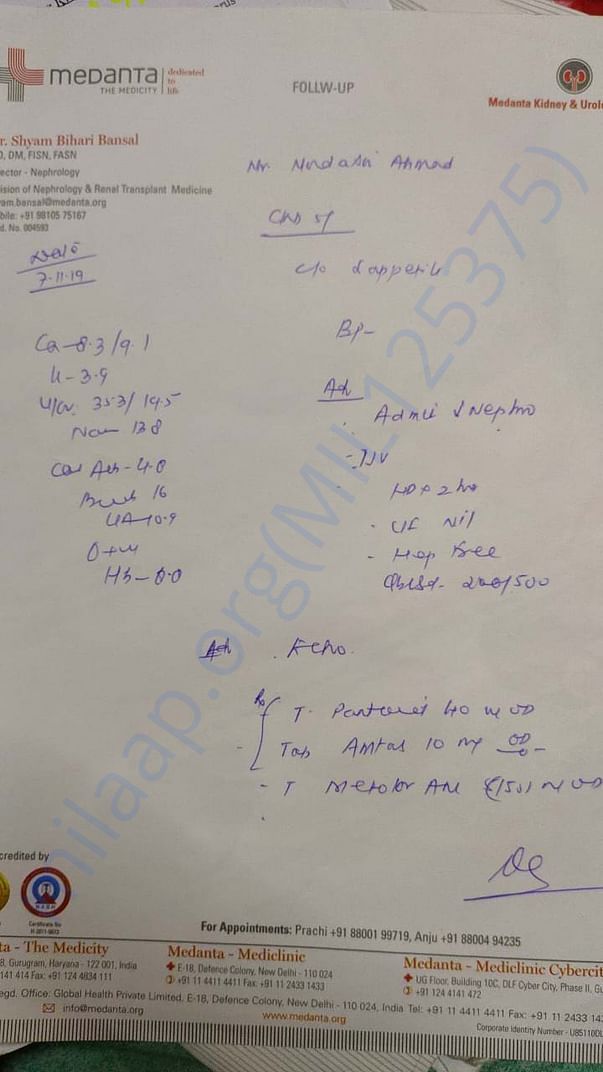 medanta
THE MEDICITY
dedicated
to
life
FOLLW-UP
Medanta Kidney & Urolo
r. Shyam Bihari Bansal
D, DM, FISN, FASN
ector - Nephrology
ision of Nephrology & Renal Transplant Medicine
yam.bansal@medanta.org
bile: +91 98105 75167
d. No. 004593
Mr. Ahmad
CKD 5
7.11.19
c/o ↓ appetite
BP-
Ca-8.3/9.1
K-3.9
353/ 14.5
138
Adv
Admit Nephro
- IJV
HD x 2 hr
- UF Nil
- Hep free
200/500
16
UA-10.9
Hb-
Echo.
T. 40 OD
Tab Amtas 10 mg OD
- T Metolar AM OD
milaap.org(MIL125375)
credited by
Certificate No
For Appointments: Prachi +91 88001 99719, Anju +91 88004 94235
ta - The Medicity
8, Gurugram, Haryana - 122 001, India
141 414 Fax: +91 124 4834 111
Medanta - Mediclinic
E-18, Defence Colony, New Delhi - 110 024
+91 11 4411 4411 Fax: +91 11 2433 1433
Medanta - Mediclinic Cybercit
UG Floor, Building 10C, DLF Cyber City, Phase II, Gu
+91 124 4141 472
egd. Office: Global Health Private Limited, E-18, Defence Colony, New Delhi - 110 024, India Tel: +91 11 4411 4411 Fax: +91 11 2433 143
info@medanta.org
www.medanta.org
Corporate Identity Number - U85110DL